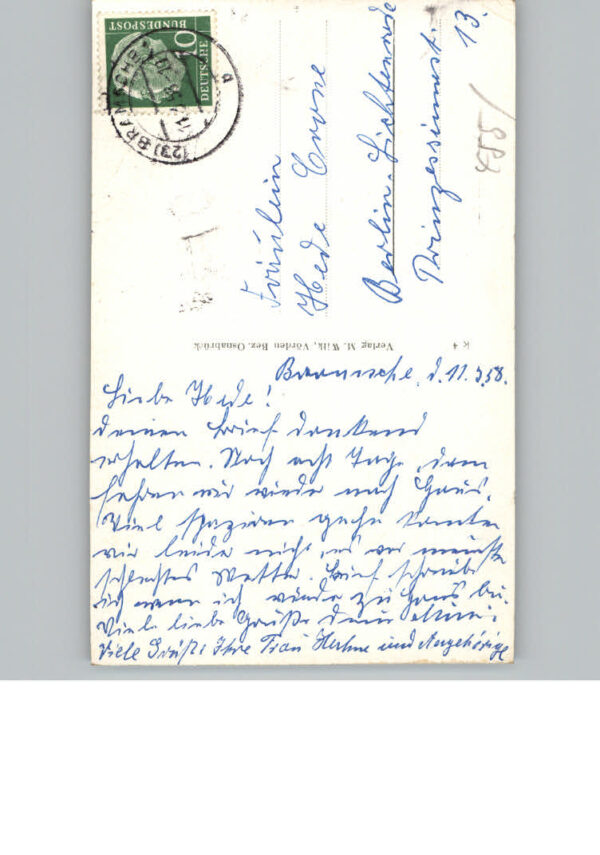 DEUTSCHE
BUNDESPOST
10
(23) BRAMSCHE
a
Fräulein
Hede Crone
Berlin-Lichtenrade
Prinzessinnenstr.
13.
Verlag M. Wilk, Vörden Bez. Osnabrück
K 4
Bramsche, d. 11.3.58.
Liebe Hede!
deinen Brief dankend
erhalten. Noch acht Tage, dann
fahren wir wieder nach Haus.
Viel spazieren gehn konnten
wir leider nicht, es war meist
schlechtes Wetter. Brief schreibe
ich wenn ich wieder zu Haus bin.
Viele liebe Grüße deine
Viele Grüße Ihre Frau Hahne und Angehörige